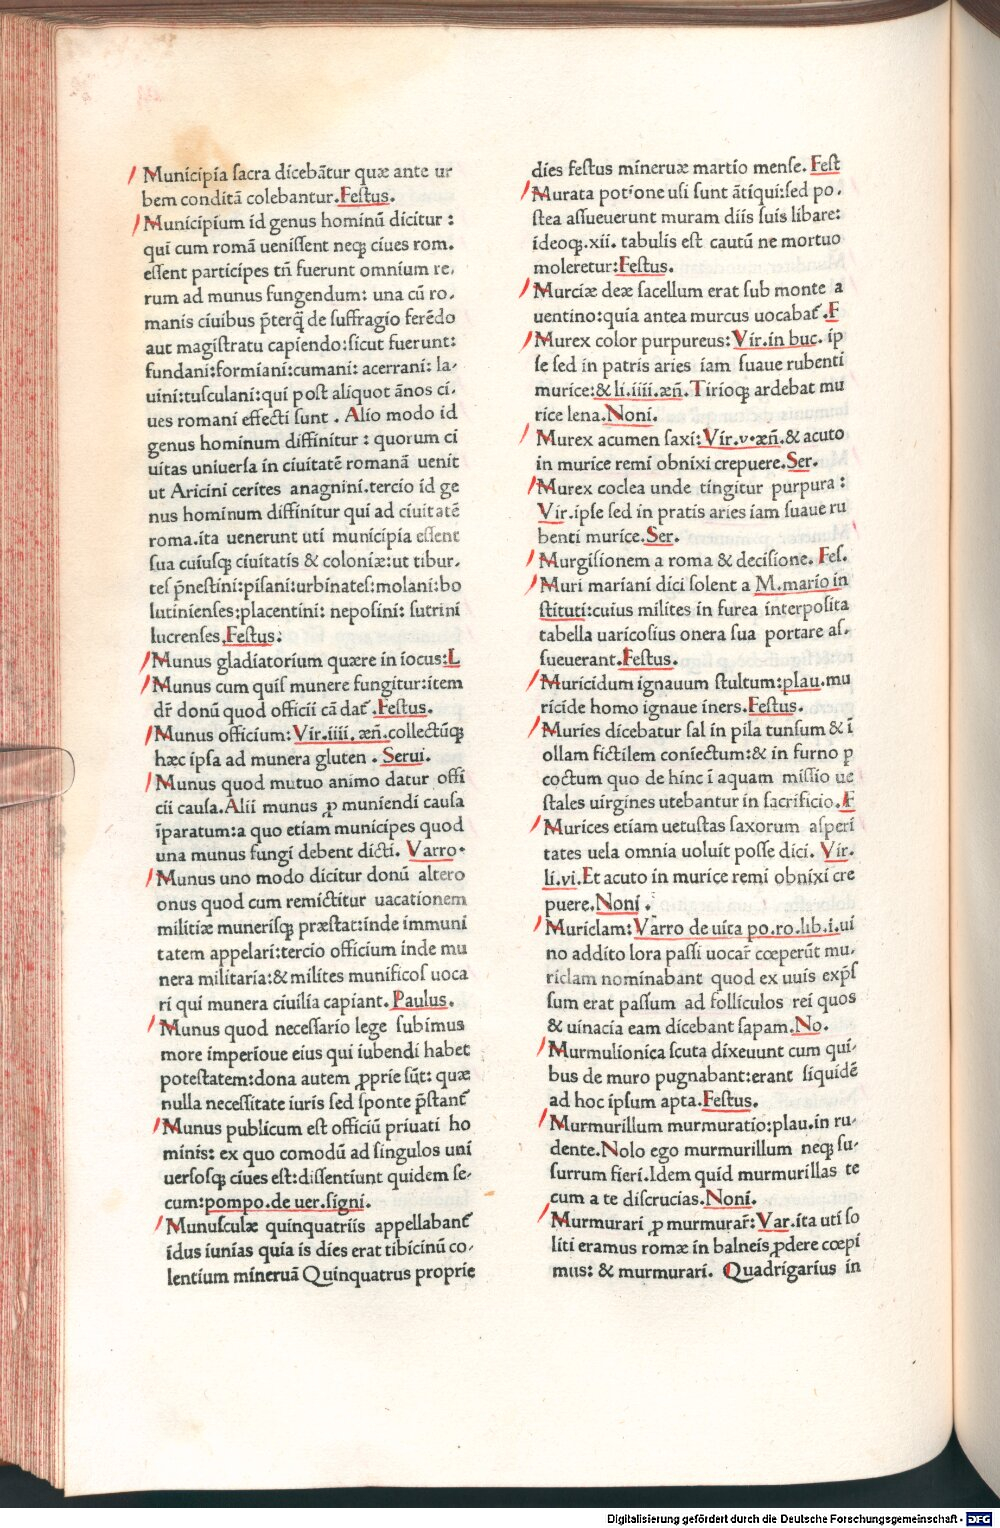 Municipia ſacra dicebãtur quæ ante ur
bem conditã colebantur.Feſtus.
Municipium id genus hominũ dicitur :
qui cum romã ueniſſent neqꝫ ciues rom.
eſſent participes tñ fuerunt omnium re,
rum ad munus fungendum: una cũ ro,
manis ciuibus p̃terq̃ de ſuffragio ferẽdo
aut magiſtratu capiendo:ſicut fuerunt:
fundani:formiani:cumani: acerrani: la,
uini:tuſculani:qui poſt aliquot ãnos ci,
ues romani effecti ſunt . Alio modo id
genus hominum diffinitur : quorum ci
uitas uniuerſa in ciuitatẽ romanã uenit
ut Aricini cerites anagnini.tercio id ge
nus hominum diffinitur qui ad ciuitatẽ
roma.ita uenerunt uti municipia eſſent
ſua cuiuſqꝫ ciuitatis & coloniæ:ut tibur,
teſ p̃neſtini:piſani:urbinateſ:molani:bo
lutinienſes;placentini: nepoſini: ſutrini
lucrenſes.Feſtus:
Munus gladiatorium quære in iocus:L
Munus cum quiſ munere fungitur:item
dr̃ donũ quod officii cã dat̃ .Feſtus.
Munus officium: Vir.iiii. æñ.collectũqꝫ
hæc ipſa ad munera gluten . Serui.
Munus quod mutuo animo datur offi
cii cauſa.Alii munus ꝓ muniendi cauſa
ĩparatum:a quo etiam municipes quod
una munus fungi debent dicti. Varro.
Munus uno modo dicitur donũ altero
onus quod cum remictitur uacationem
militiæ muneriſqꝫ præſtat:inde immuni
tatem appelari:tercio officium inde mu
nera militaria:& milites munificoſ uoca
ri qui munera ciuilia capiant. Paulus.
Munus quod neceſſario lege ſubimus
more imperioue eius qui iubendi habet
poteſtatem:dona autem ꝓprie ſũt: quæ
nulla neceſſitate iuris ſed ſponte p̃ſtant̃
Munus publicum eſt officiũ priuati ho
minis: ex quo comodũ ad ſingulos uni
uerſoſqꝫ ciues eſt:diſſentiunt quidem ſe,
cum:pompo.de uer.ſigni.
Munuſculæ quinquatriis appellabant̃
idus iunias quia is dies erat tibicinũ co,
lentium mineruã Quinquatrus proprie
dies feſtus mineruæ martio menſe. Feſt
Murata potione uſi ſunt ãtiqui:ſed po,
ſtea aſſueuerunt muram diis ſuis libare:
ideoqꝫ.xii. tabulis eſt cautũ ne mortuo
moleretur:Feſtus.
Murciæ deæ ſacellum erat ſub monte a
uentino:quia antea murcus uocabat̃.F
Murex color purpureus: Vir.in buc. ip
ſe ſed in patris aries iam ſuaue rubenti
murice:& li.iiii.æñ. Tirioqꝫ ardebat mu
rice lena.Noni.
Murex acumen ſaxi:Vir.v.æñ.& acuto
in murice remi obnixi crepuere.Ser.
Murex coclea unde tingitur purpura :
Vir.ipſe ſed in pratis aries iam ſuaue ru
benti murice.Ser.
Murgiſionem a roma & deciſione. Feſ.
Muri mariani dici ſolent a M.mario in
ſtituti:cuius milites in furea interpoſita
tabella uaricoſius onera ſua portare aſ,
ſueuerant.Feſtus.
Muricidum ignauum ſtultum:plau.mu
ricide homo ignaue iners.Feſtus.
Muries dicebatur ſal in pila tunſum & ĩ
ollam fictilem coniectum:& in furno p
coctum quo de hinc ĩ aquam miſſio ue
ſtales uirgines utebantur in ſacrificio.F
Murices etiam uetuſtas ſaxorum aſperi
tates uela omnia uoluit poſſe dici. Vir.
li.vi.Et acuto in murice remi obnixi cre
puere.Noni .
Muriclam:Varro de uita po.ro.lib.i.ui
no addito lora paſſi uocar̃ cœperũt mu,
riclam nominabant quod ex uuis exp̃ſ
ſum erat paſſum ad follículos rei quos
& uinacia eam dicebant ſapam.No.
Murmulionica ſcuta dixeuunt cum qui,
bus de muro pugnabant:erant ſiquidẽ
ad hoc ipſum apta.Feſtus.
Murmurillum murmuratio:plau.in ru,
dente.Nolo ego murmurillum neqꝫ ſu,
ſurrum fieri.Idem quid murmurillas te
cum a te diſcrucias.Noni.
Murmurari ꝓ murmurar̃: Var.ita uti ſo
liti eramus romæ in balneis ꝓdere cœpi
mus: & murmurari. Quadrigarius in
Digitalisierung gefördert durch die Deutsche Forschungsgemeinschaft - DFG